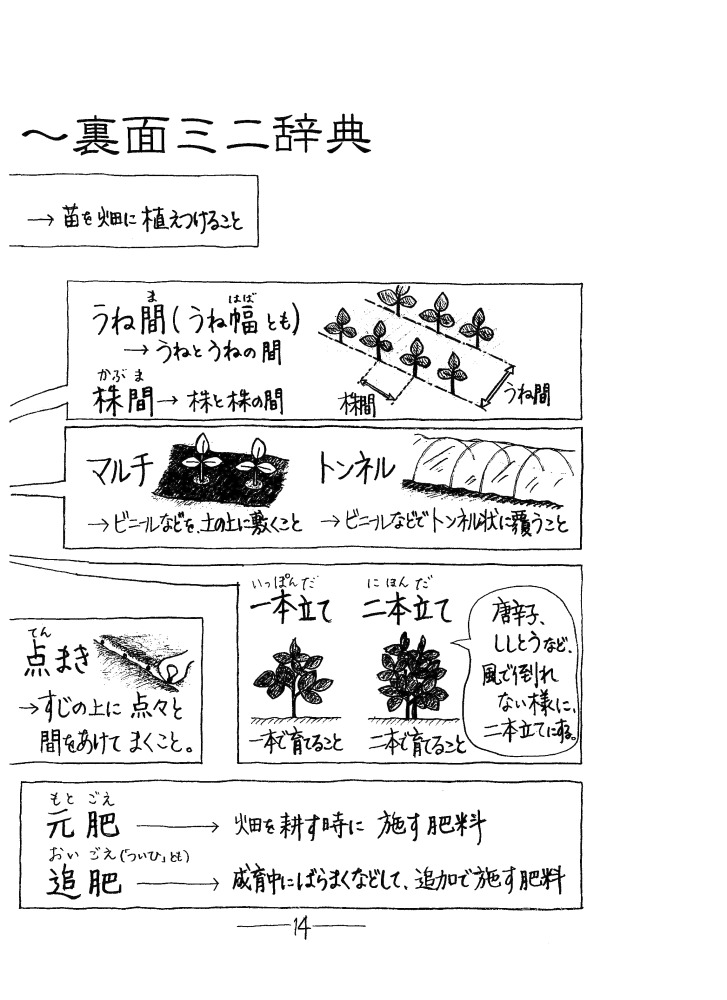 ～裏面ミニ辞典
→苗を畑に植えつけること
うね間(うね幅とも)
ま
はば
→うねとうねの間
かぶま
株間→株と株の間
株間
うね間
マルチ
→ビニールなどを、土の上に敷くこと
トンネル
→ビニールなどでトンネル状に覆うこと
いっぽんだ
一本立て
一本で育てること
にほんだ
二本立て
二本で育てること
唐辛子、
ししとうなど、
風で倒れ
ない様に、
二本立てにする。
てん
点まき
→すじの上に点々と
間をあけてまくこと。
もとごえ
元肥→畑を耕す時に施す肥料
おいごえ(「ついひ」とも)
追肥→成育中にばらまくなどして、追加で施す肥料
14